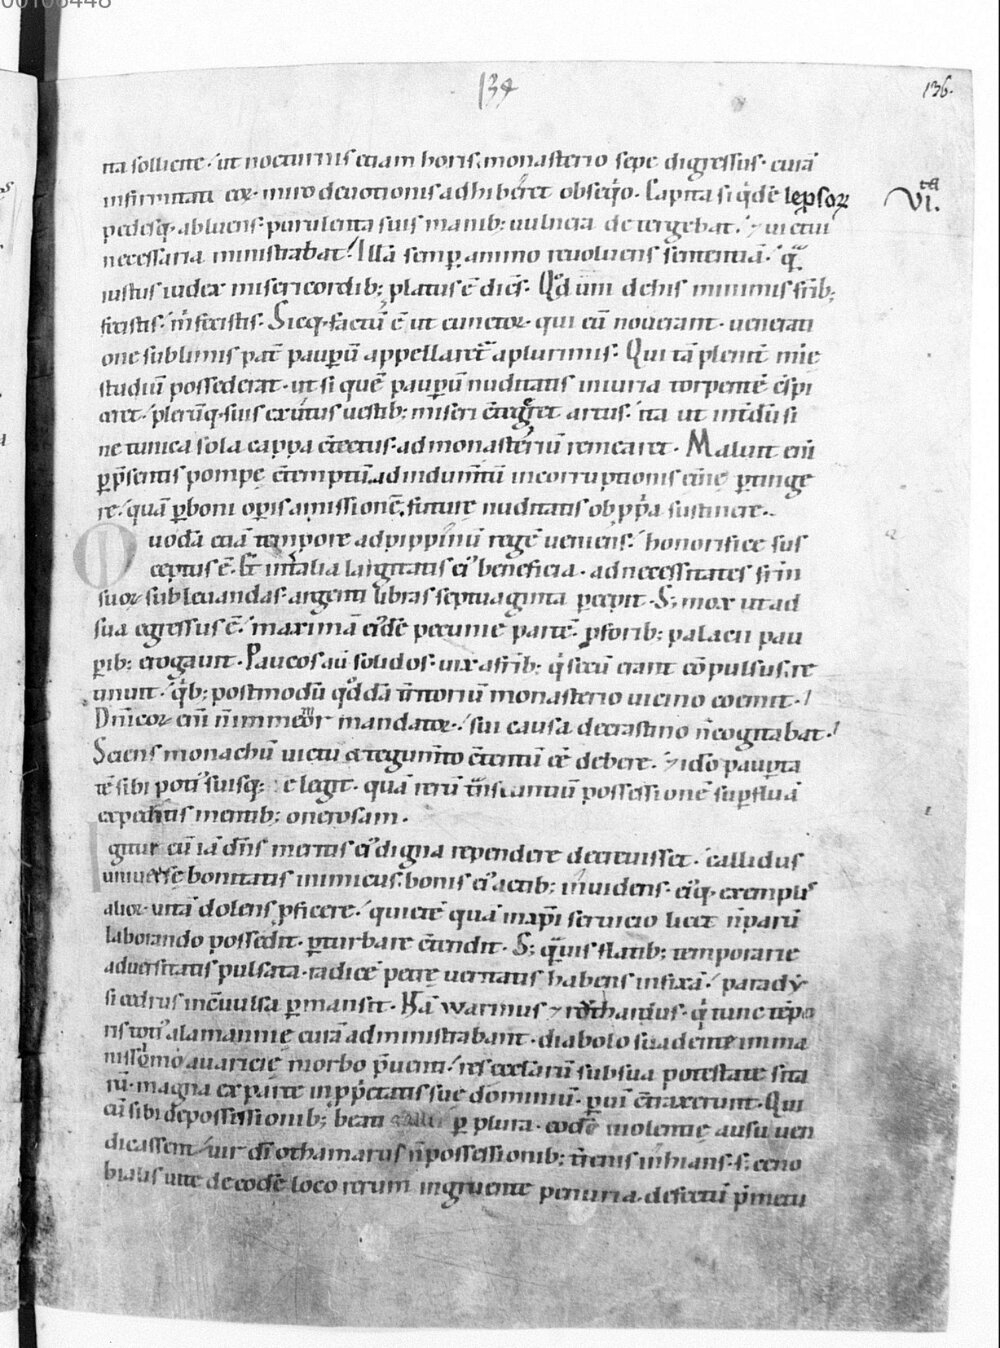 00106448
134
136.
ita sollicite. ut nocturnis etiam horis, monasterio sepe digressus. eiuā
infirmitati eoꝝ. miro deuotionis adhiberet obseqͥo. Capita siqͥdē lep̱soꝝ
VI. ta
pedesqꝫ abluens. purulenta suis manibꝫ uulnera detergebat. ⁊ uictui
necessaria ministrabat. Illā semp̱ animo reuoluens sententiā. qͣ
iustus iudex misericordibꝫ placatus ē dicēs. Qd̄ uni de his minimis fr̄ibꝫ
fecistis. m̄ fecistis. Sicqꝫ factū ē ut cunctoꝝ. qui eū nouerant. uenerati
one sublimis pat̄ paup̱ū appellaret̄ a plurimis. Qui tā pleniť mie
studiū possederat. ut si quē paup̱ū nuditatis iniuria torpentē c̄spi
ceret. plerūqꝫ suis exutus uestibꝫ miseri c̄tegeret artus. ita ut int̄dū si
ne tunica sola cappa c̄tectus. ad monasteriū remearet. Maluit eni
p̱ p̄sentis pompę c̄temptū, ad indum̄tū incorruptionis et̄ne p̱tinge
re. quā p̱ boni op̱is amissionē, futurę nuditatis obp̱p̱a sustinere.
Quodā etiā tempore ad pippinū regē ueniens. honorifice sus
ceptus ē. Et int̄ alia largitatis eiꝰ beneficia. ad necessitates fr̄m
suoꝝ subleuandas. argenti libras septuaginta p̱cepit. Sꝫ mox ut ad
sua egressus ē. maximā eiꝰdē pecunie partē. p̱ foribꝫ palacii pau
p̱ibꝫ erogauit. Paucos aū solidos. uix a fr̄ibꝫ qͥ secū erant cōpulsus. re
tinuit. qͥbꝫ postmodū qͦddā t̄ritoriū monasterio uicino coemit.
Dn̄icoꝝ eni n̄ immemor mandatoꝝ. sui causa de crastino n̄ cogitabat.
Sciens monachū uictu & tegum̄to c̄tentū eē debere. ⁊ idō paup̱ta
tē sibi potiꝰ suisqꝫ elegit. quā rerū t̄nseuntiū possessionē sup̱fluā
expeditis mentibꝫ onerosam.
Igitur cū iā dn̄s meritis eiꝰ digna rependere decreuisset. callidus
uniuerse bonitatis inimicus. bonis eiꝰ actibꝫ inuidens. eiꝰqꝫ exemplis
alioꝝ uitā dolens p̱ficere. quietē quā in xp̄i seruicio licet n̄ parū
laborando possedit. p̱turbare c̄tendit. Sꝫ qͣuis flatibꝫ temporarie
aduersitatis pulsata. radicē petrę ueritatis habens infixā. parady
si cedrus inc̄uulsa p̱mansit. Nā warinus ⁊ rǒthardus. qͥ tunc tēpo
ris totiꝰ alamannię curā administrabant. diabolo suadente imma
nissimo auaricię morbo p̄uenti. res ecclarū sub sua potestate sita
rū. magna ex parte in pp̱etatis sue dominiū. p̱ uim c̄traxerunt. Qui
cū sibi de possessionibꝫ beati galli p̱ plura. eodē uiolentię ausu uen
dicassent. uir dī othamarus n̄ possessionibꝫ t̄renis inhians. sꝫ ceno
bialis uite de eodē loco rerum ingruente penuria. defectū p̄metu